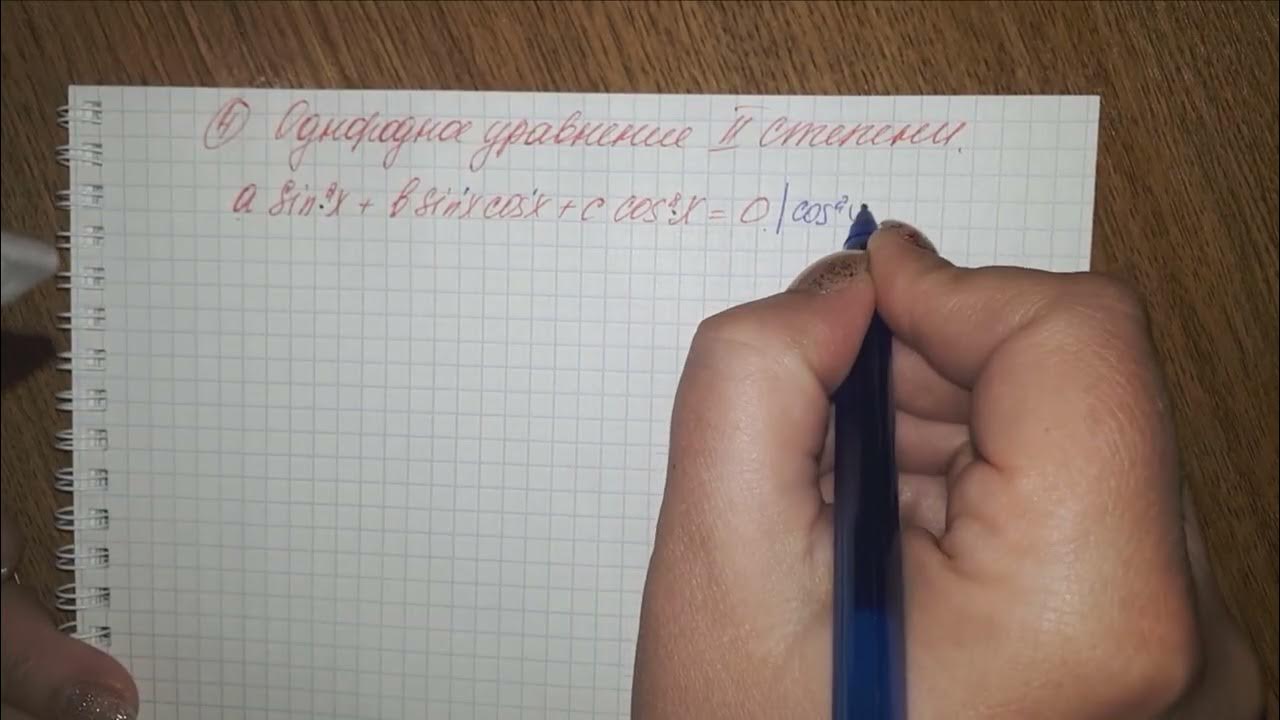 ④ Однородное уравнение II степени.
a sin²x + b sin x cos x + c cos²x = 0 | cos²